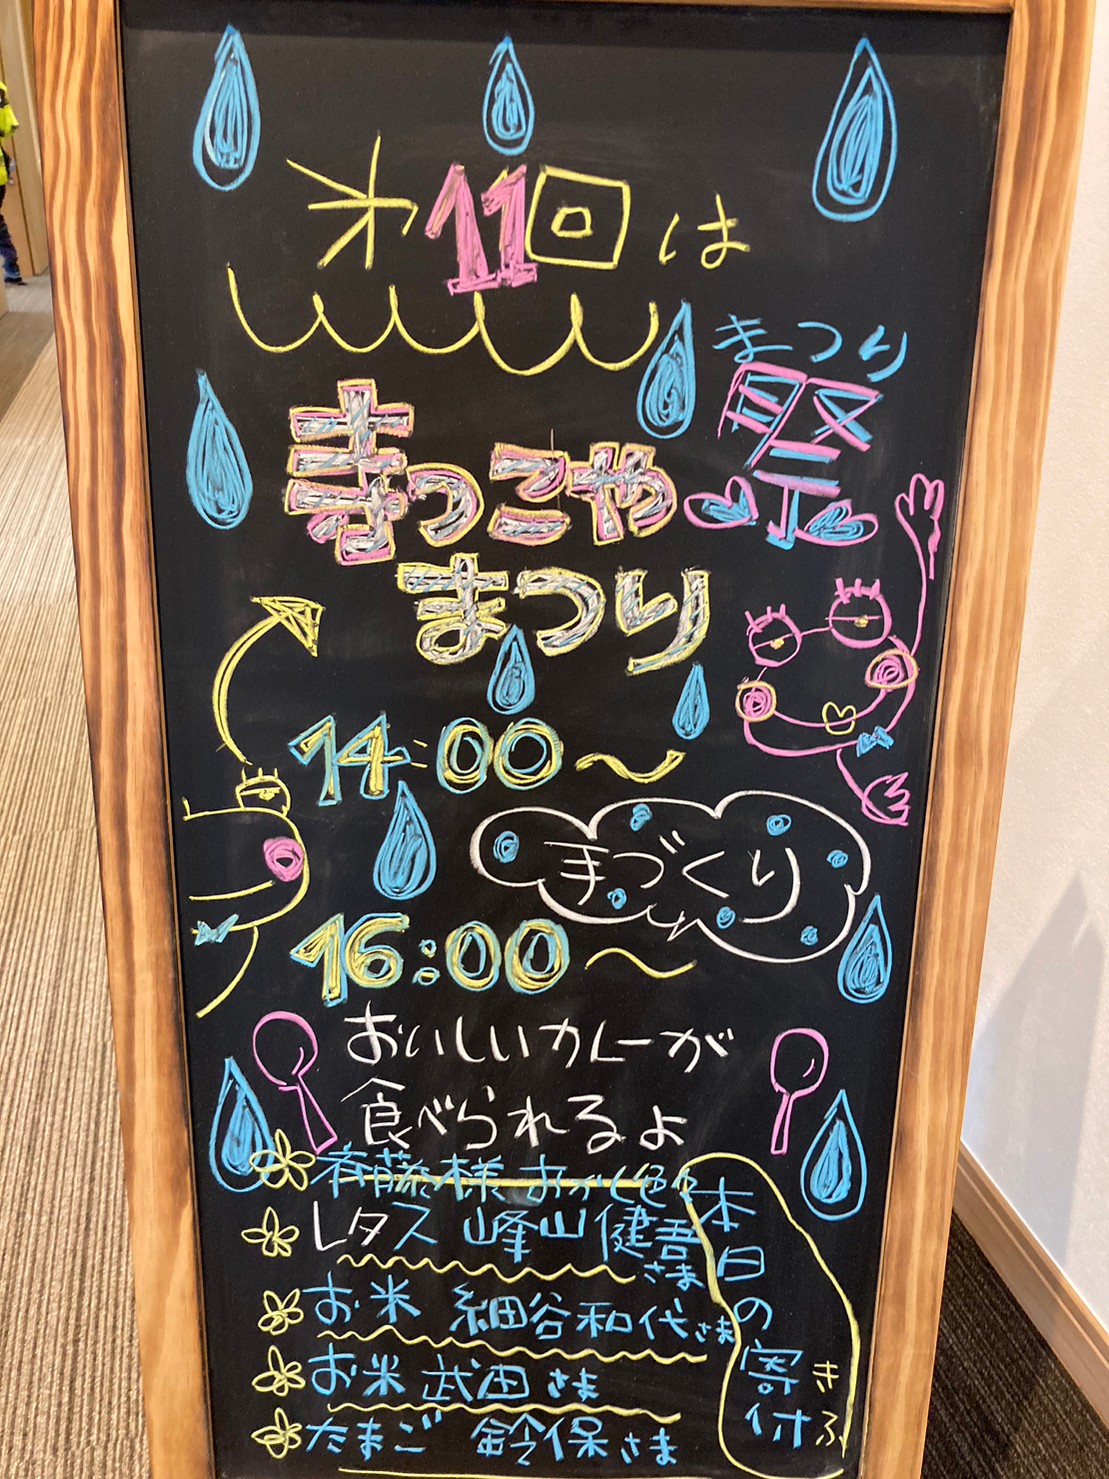 才11回は
まつり
祭
きっこや
まつり
14:00〜
手づくり
16:00〜
おいしいカレーが
食べられるよ
斉藤様 おかし色々
レタス 峰山健吾さま
お米 細谷和代さま
お米 武田さま
たまご 鈴保さま
本日の寄付
きふ